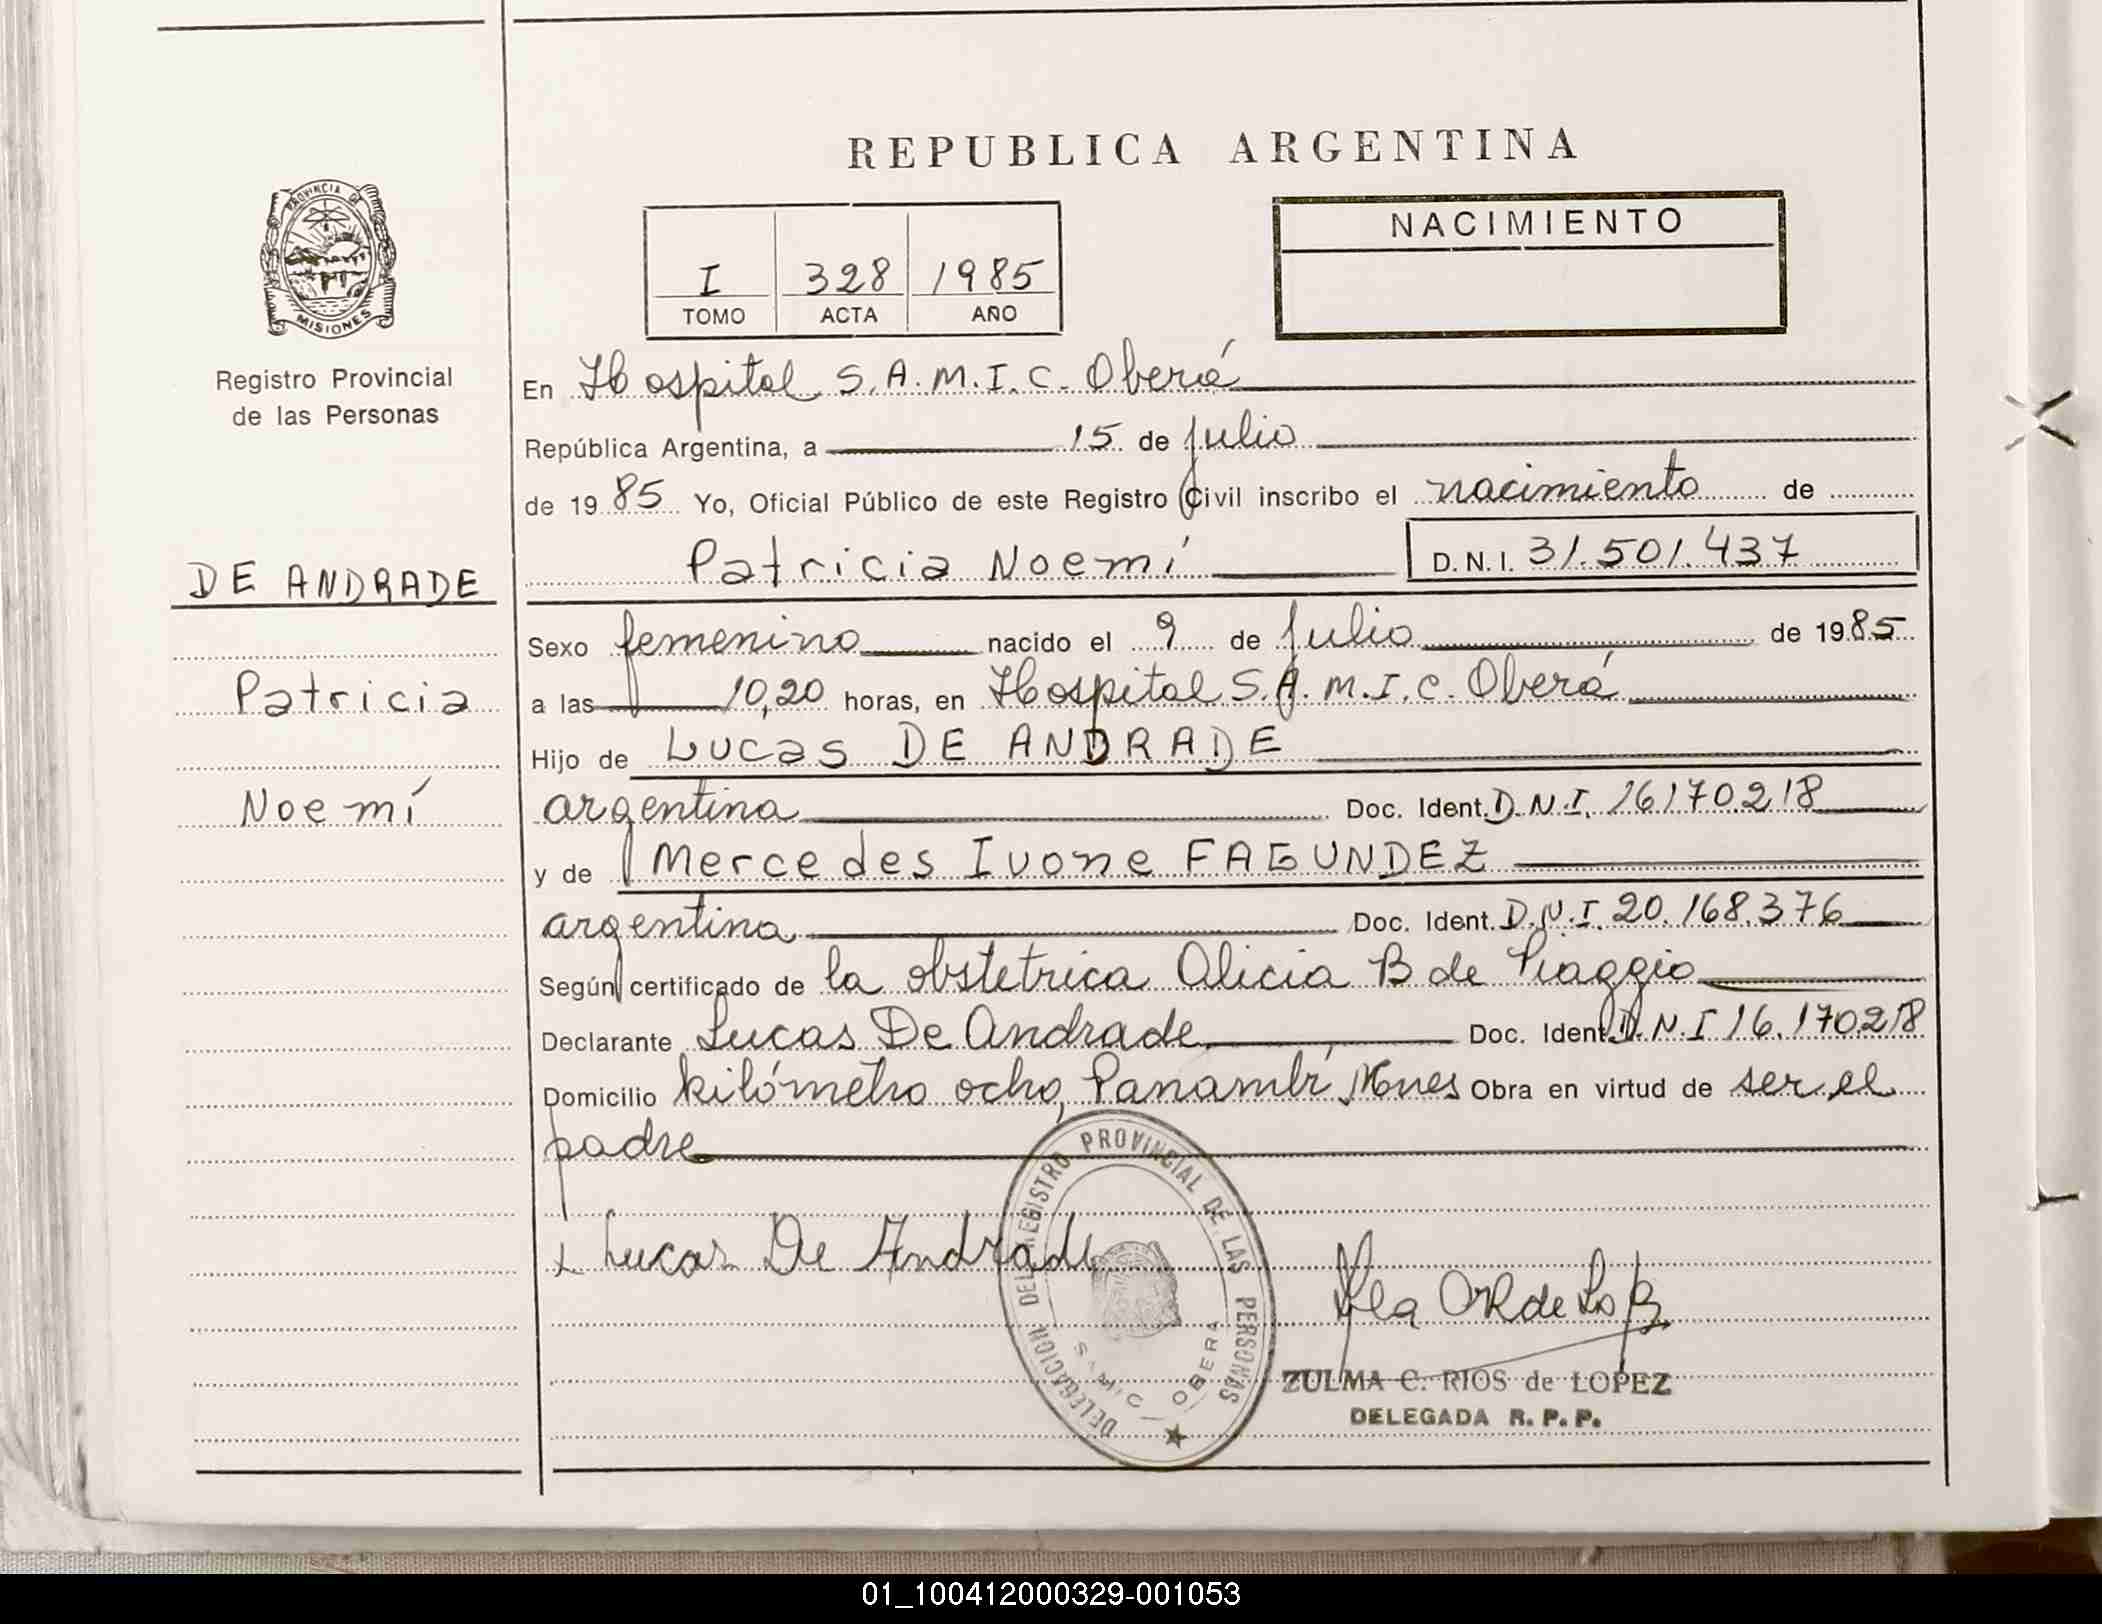 REPUBLICA ARGENTINA
PROVINCIA DE
MISIONES
Registro Provincial
de las Personas
NACIMIENTO
I 328 1985
TOMO ACTA AÑO
En Hospital S.A.M.I.C. Oberá
República Argentina, a 15 de julio
de 1985 Yo, Oficial Público de este Registro Civil inscribo el nacimiento de
Patricia Noemí D.N.I. 31.501.437
DE ANDRADE
Patricia
Noemí
Sexo femenino nacido el 9 de julio de 1985
a las 10,20 horas, en Hospital S.A.M.I.C. Oberá
Hijo de Lucas DE ANDRADE
argentina Doc. Ident. D.N.I. 16170218
y de Mercedes Ivone FAGUNDEZ
argentina Doc. Ident. D.N.I. 20.168.376
Según certificado de la obstetrica Alicia B de Piaggio
Declarante Lucas De Andrade Doc. Ident. D.N.I 16.170.218
Domicilio kilómetro ocho, Panambí Mnes Obra en virtud de ser el
padre
x Lucas De Andrade
DELEGACION DEL REGISTRO PROVINCIAL DE LAS PERSONAS
S.A.M.I.C. OBERA
ZULMA C. RIOS de LOPEZ
DELEGADA R. P. P.
01_100412000329-001053